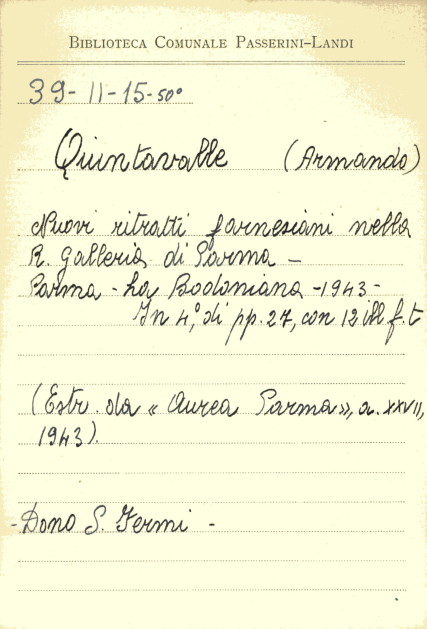 BIBLIOTECA COMUNALE PASSERINI-LANDI
39-11-15-50°
Quintavalle (Armando)
Nuovi ritratti farnesiani nella
R. Galleria di Parma -
Parma - La Bodoniana - 1943 -
In 4°, di pp. 27, con 12 ill f. t
(Estr. da « Aurea Parma », a. XXVII,
1943).
- Dono S. Fermi -